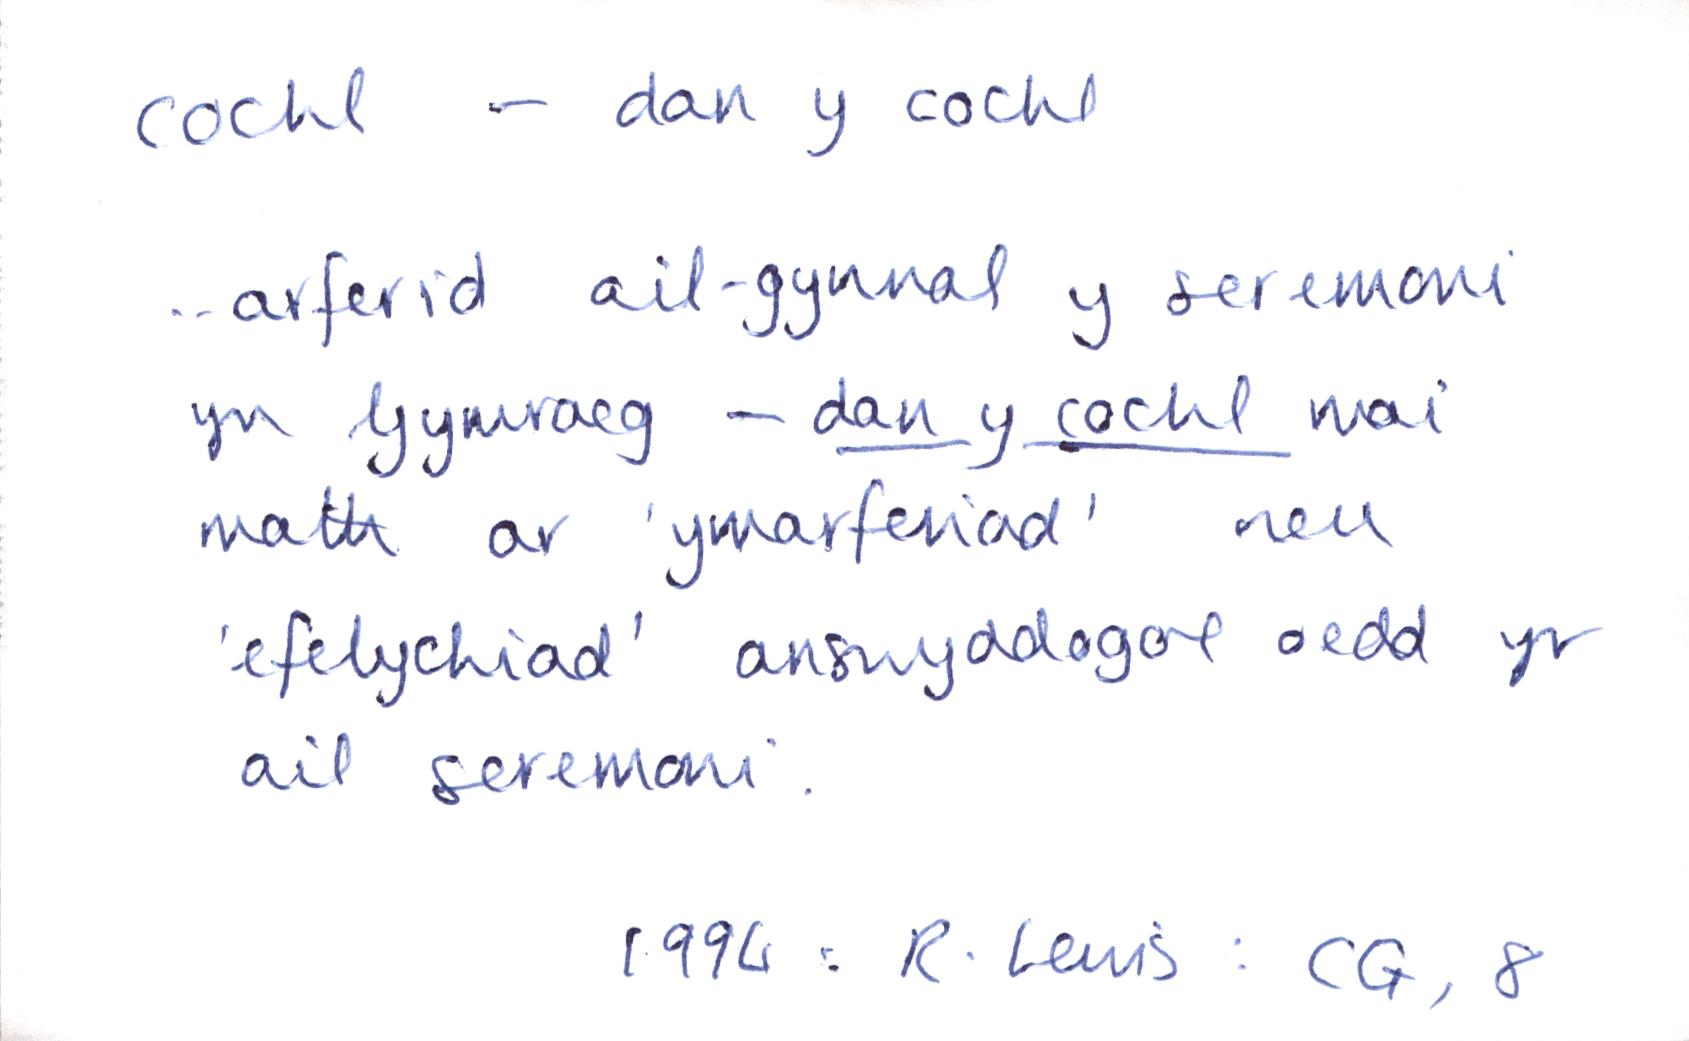 cochl - dan y cochl
..arferid ail-gynnal y seremoni
yn Gymraeg - dan y cochl mai
math ar 'ymarferiad' neu
'efelychiad' answyddogol oedd yr
ail seremoni.
1994 : R. Lewis : CG, 8